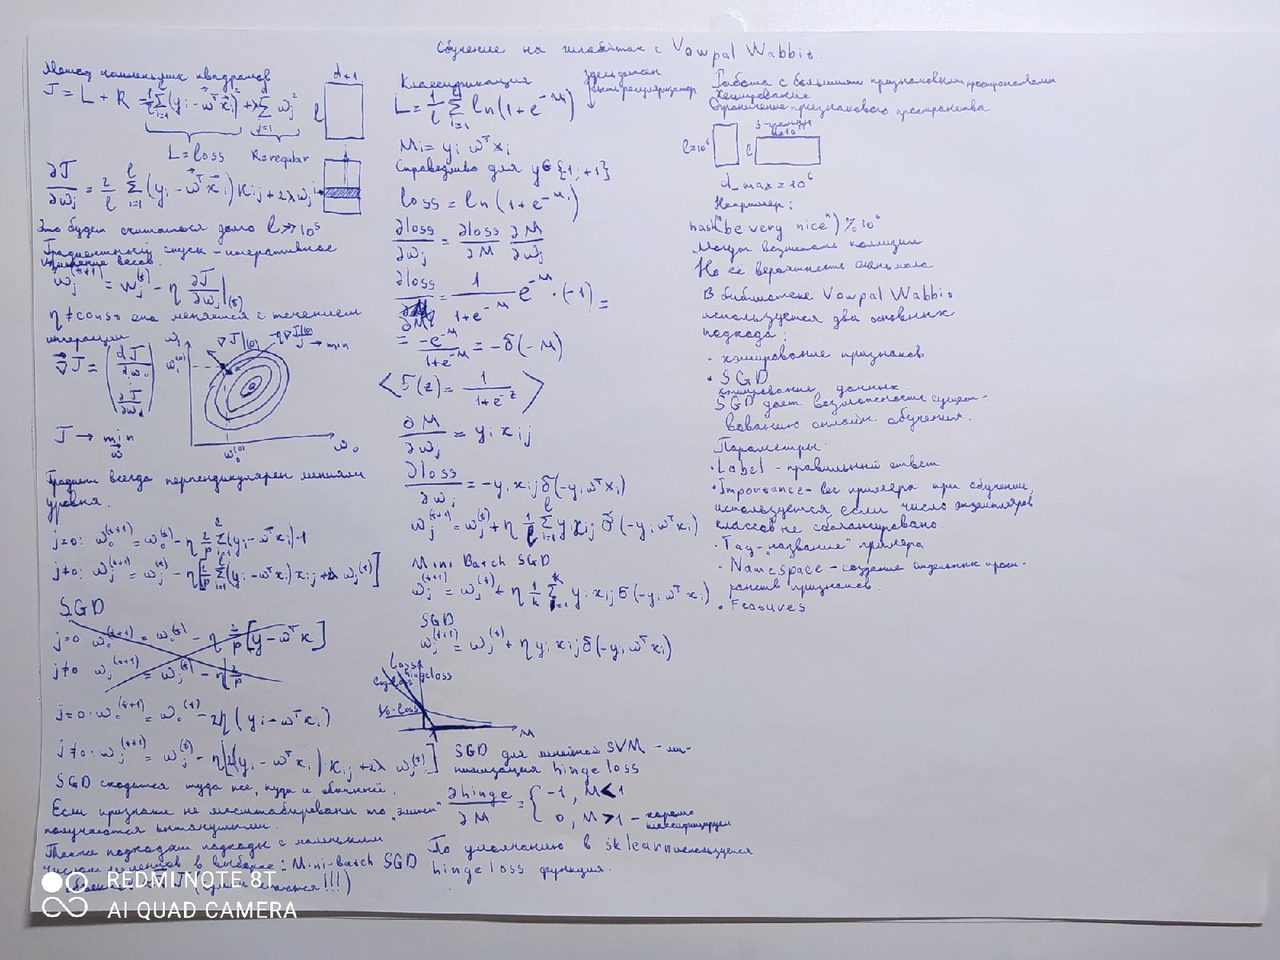 Обучение на гигабайтах с Vowpal Wabbit.
Метод наименьших квадратов
d+1
J = L + R = 1/l Σ(yᵢ - wᵀxᵢ)² + λ Σ wⱼ²
l
L = loss
R = regular
∂J/∂wⱼ = 2/l Σ (yᵢ - wᵀxᵢ) xᵢⱼ + 2λwⱼ
Это будет считаться долго l ≫ 10⁵
Градиентный спуск - итеративное
изменение весов.
wⱼ⁽ᵗ⁺¹⁾ = wⱼ⁽ᵗ⁾ - η ∂J/∂wⱼ|₍ₜ₎
η ≠ const она меняется с течением
итерации
J → min
J → min
w
w₀
Градиент всегда перпендикулярен линиям
уровня.
j=0: w₀⁽ᵗ⁺¹⁾ = w₀⁽ᵗ⁾ - η 2/l Σ(yᵢ - wᵀxᵢ)·1
j≠0: wⱼ⁽ᵗ⁺¹⁾ = wⱼ⁽ᵗ⁾ - η[2/l Σ(yᵢ - wᵀxᵢ) xᵢⱼ + 2λ wⱼ⁽ᵗ⁾]
SGD
j=0: w₀⁽ᵗ⁺¹⁾ = w₀⁽ᵗ⁾ - 2η (yᵢ - wᵀxᵢ)
j≠0: wⱼ⁽ᵗ⁺¹⁾ = wⱼ⁽ᵗ⁾ - η[2(yᵢ - wᵀxᵢ)·xᵢⱼ + 2λ wⱼ⁽ᵗ⁾]
SGD сходится туда же, куда и обычный.
Если признаки не масштабированы то "линии"
получаются вытянутыми.
Также подходят подходы с маленьким
числом элементов в выборке: Mini-batch SGD
Классификация
здесь должен
быть регуляризатор
L = 1/l Σ ln(1 + e^(-Mᵢ))
Mᵢ = yᵢ wᵀxᵢ
Справедливо для y∈{1; +1}
loss = ln(1 + e^(-Mᵢ))
∂loss/∂wⱼ = ∂loss/∂M ∂M/∂wⱼ
∂loss/∂Mᵢ = 1/(1 + e^(-M)) e^(-M) · (-1) =
= -e^(-M)/(1 + e^(-M)) = -δ(-M)
⟨σ(z) = 1/(1 + e^(-z))⟩
∂M/∂wⱼ = yᵢ xᵢⱼ
∂loss/∂wⱼ = -yᵢ xᵢⱼ δ(-yᵢ wᵀxᵢ)
wⱼ⁽ᵗ⁺¹⁾ = wⱼ⁽ᵗ⁾ + η 1/l Σ yᵢ xᵢⱼ δ(-yᵢ wᵀxᵢ)
Mini Batch SGD
wⱼ⁽ᵗ⁺¹⁾ = wⱼ⁽ᵗ⁾ + η 1/k Σ yᵢ xᵢⱼ δ(-yᵢ wᵀxᵢ)
SGD
wⱼ⁽ᵗ⁺¹⁾ = wⱼ⁽ᵗ⁾ + η yᵢ xᵢⱼ δ(-yᵢ wᵀxᵢ)
Loss
hinge loss
log-loss
1/0-loss
M
SGD для линейной SVM - ми-
нимизация hinge loss
∂hinge/∂M = { -1, M < 1
0, M > 1 - хорошо
классифицируем
По умолчанию в sklearn используется
hinge loss функция.
Работа с большими признаковыми пространствами
Хеширование
Ограничение признакового пространства
l=10⁶
l
d_max = 10⁶
Например:
hash("be very nice") % 10⁶
Могут возникать коллизии
Но её вероятность очень мала
В библиотеке Vowpal Wabbit
используется два основных
подхода:
· хэширование признаков
· SGD
хэширование данных
SGD дает возможность сущест-
вованию онлайн обучения.
Параметры:
· Label - правильный ответ
· Importance - вес примера при обучении,
используется если число экземпляров
классов не сбалансировано.
· Tag - "название" примера
· Namespace - создание отдельных прост-
ранств признаков.
· Features
REDMI NOTE 8T
AI QUAD CAMERA